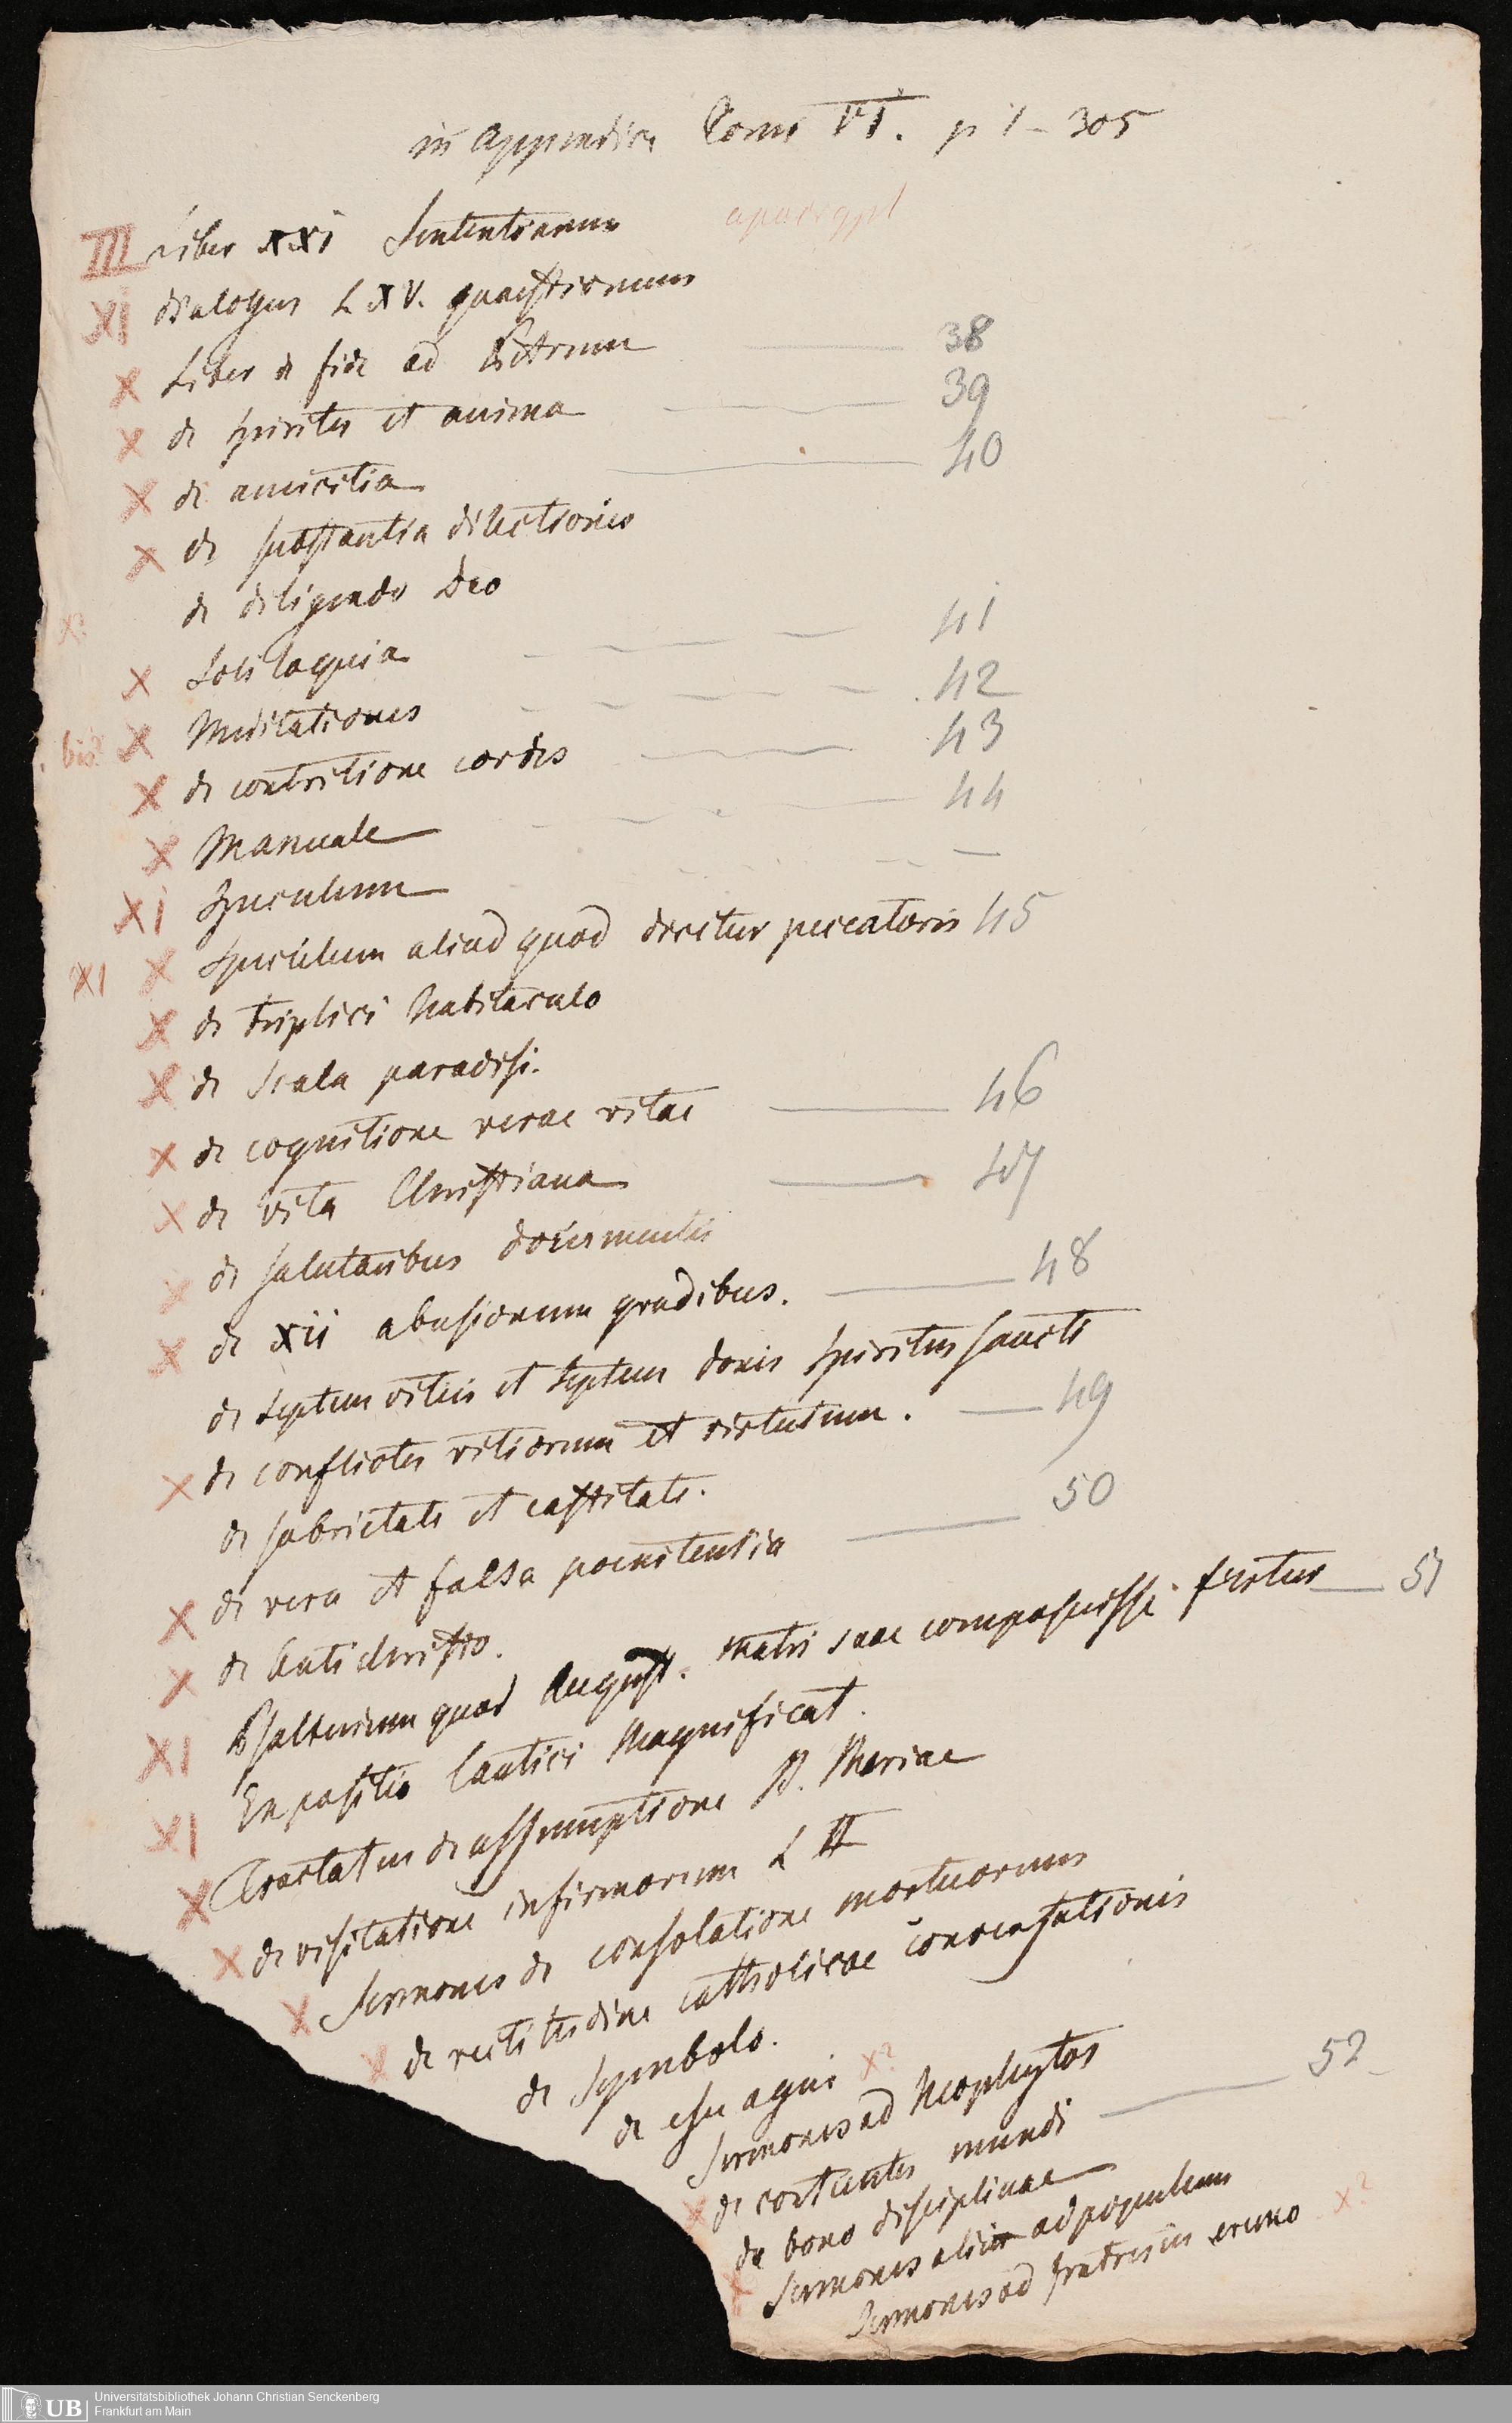 in appendice Tomi VI. p 1 - 305
III Liber XXI Sententiarum
XI dialogus LXV. quaestionum
X Liber de fide ad Petrum 38
X de spiritu et anima 39
X de amicitia 40
X de substantia dilectionis
X? de diligendo Deo
X Soliloquia 41
bis? X Meditationes 42
X de contritione cordis 43
X Manuale 44
XI Speculum —
XI X Speculum aliud quod dicitur peccatoris 45
X de triplici habitaculo
X de Scala paradisi.
X de cognitione verae vitae 46
X de vita Christiana 47
X de salutaribus documentis
X de XII abusionum gradibus. 48
de septem vitiis et septem donis spiritus sancti
X de conflictu vitiorum et virtutum. 49
de sobrietate et castitate.
X de vera et falsa poenitentia 50
X de Antichristo.
XI Psalterium quod August. Matri suae composuisse fertur 51
XI Expositio Cantici Magnificat.
X Tractatus de assumptione B. Mariae
X de visitatione infirmorum L II
X Sermones de consolatione mortuorum
X de rectitudine catholicae conversationis
de Symbolo.
de esu agni X?
Sermones ad Neophytos
X de contemtu mundi 52
de bono disciplinae
X Sermones alii ad populum
Sermones ad fratres in eremo X?
UB Universitätsbibliothek Johann Christian Senckenberg
Frankfurt am Main